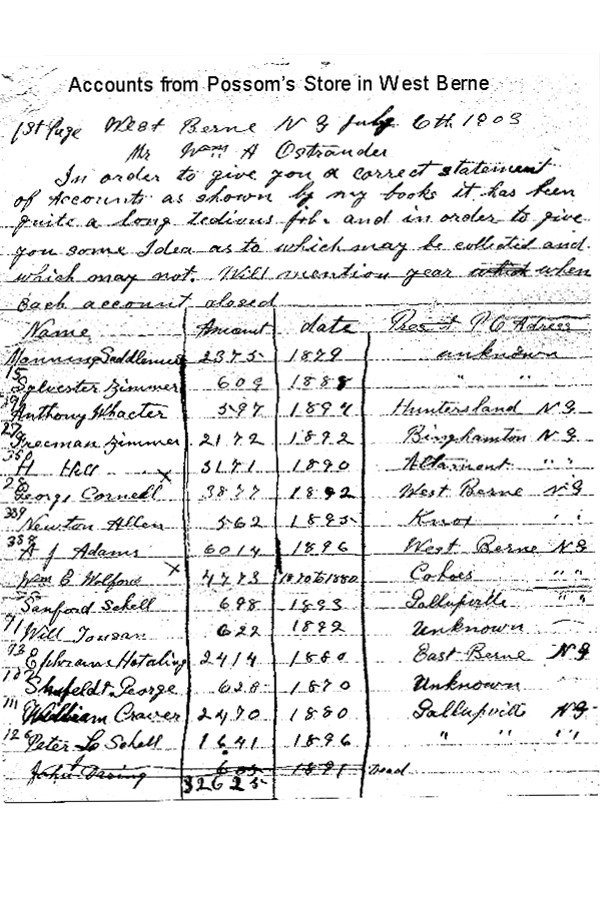 Accounts from Possom's Store in West Berne
1st Page West Berne N Y July 6th 1903
Mr Wm A Ostrander
In order to give you a correct statement
of Accounts as shown by my books it has been
quite a long tedious job. and in order to give
you some Idea as to which may be collected and
which may not. Will mention year when
Each account closed
Name Amount date Pres t P O Adress
Manning Saddlemire 2375 1879 unknown
15 Sylvester Zimmer 609 1888 " "
Anthony Whacter 597 1897 Huntersland N Y
27 Freeman Zimmer 2172 1892 Binghamton N Y
35 H Hill x 3171 1890 Altamont " "
28 George Cornell 3877 1892 West Berne N Y
339 Newton Allen 562 1895 Knox " "
338 A J Adams 6014 1896 West Berne N Y
Wm E Wolford x 4773 1870 to 1880 Cohoes " "
Sanford Schell 698 1893 Gallupville " "
71 Will Tousan 622 1892 Unknown
73 Ephraim Hotaling 2414 1880 East Berne N Y
102 Shufeldt George 628 1870 Unknown
111 William Craver 2470 1880 Gallupville N Y
126 Peter L Schell 1641 1896 " " " "
John Irving 605 1891 Dead
32625